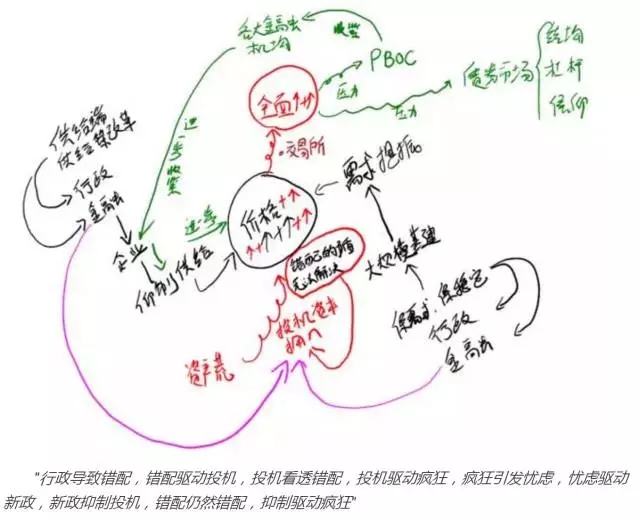 各大金融
机构
收紧
PBOC
压力
债券市场
结构
杠杆
信仰
全面↑↑
压力
供给端
供给侧改革
行政
金融
进一步收紧
交易所
需求
价格
企业
抑制供给
大规模基建
错配的矛盾
无法解决
投机资本
拥入
资产荒
保需求、保稳定
行政
金融
"行政导致错配，错配驱动投机，投机看透错配，投机驱动疯狂，疯狂引发忧虑，忧虑驱动
新政，新政抑制投机，错配仍然错配，抑制驱动疯狂"